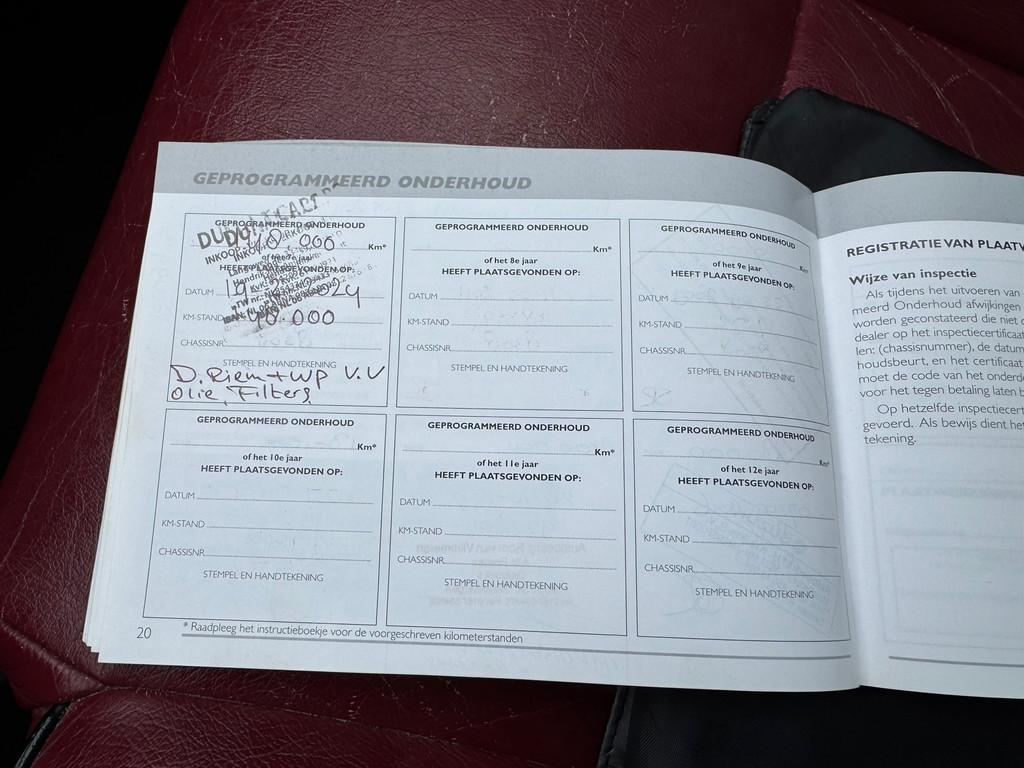 GEPROGRAMMEERD ONDERHOUD
GEPROGRAMMEERD ONDERHOUD
000 Km*
HEEFT PLAATSGEVONDEN OP:
DATUM
KM-STAND 90.000
CHASSISNR.
STEMPEL EN HANDTEKENING
D. Riem + WP V.V
Olie, Filters
GEPROGRAMMEERD ONDERHOUD
Km*
of het 8e jaar
HEEFT PLAATSGEVONDEN OP:
DATUM
KM-STAND
CHASSISNR.
STEMPEL EN HANDTEKENING
GEPROGRAMMEERD ONDERHOUD
Km*
of het 9e jaar
HEEFT PLAATSGEVONDEN OP:
DATUM
KM-STAND
CHASSISNR.
STEMPEL EN HANDTEKENING
GEPROGRAMMEERD ONDERHOUD
Km*
of het 10e jaar
HEEFT PLAATSGEVONDEN OP:
DATUM
KM-STAND
CHASSISNR.
STEMPEL EN HANDTEKENING
GEPROGRAMMEERD ONDERHOUD
Km*
of het 11e jaar
HEEFT PLAATSGEVONDEN OP:
DATUM
KM-STAND
CHASSISNR.
STEMPEL EN HANDTEKENING
GEPROGRAMMEERD ONDERHOUD
Km*
of het 12e jaar
HEEFT PLAATSGEVONDEN OP:
DATUM
KM-STAND
CHASSISNR.
STEMPEL EN HANDTEKENING
20
* Raadpleeg het instructieboekje voor de voorgeschreven kilometerstanden
REGISTRATIE VAN PLAATW
Wijze van inspectie
Als tijdens het uitvoeren van
meerd Onderhoud afwijkingen
worden geconstateerd die niet
dealer op het inspectiecertificaat
len: (chassisnummer), de datum
houdsbeurt, en het certificaat
moet de code van het onderde
voor het tegen betaling laten
Op hetzelfde inspectiecert
gevoerd. Als bewijs dient het
tekening.